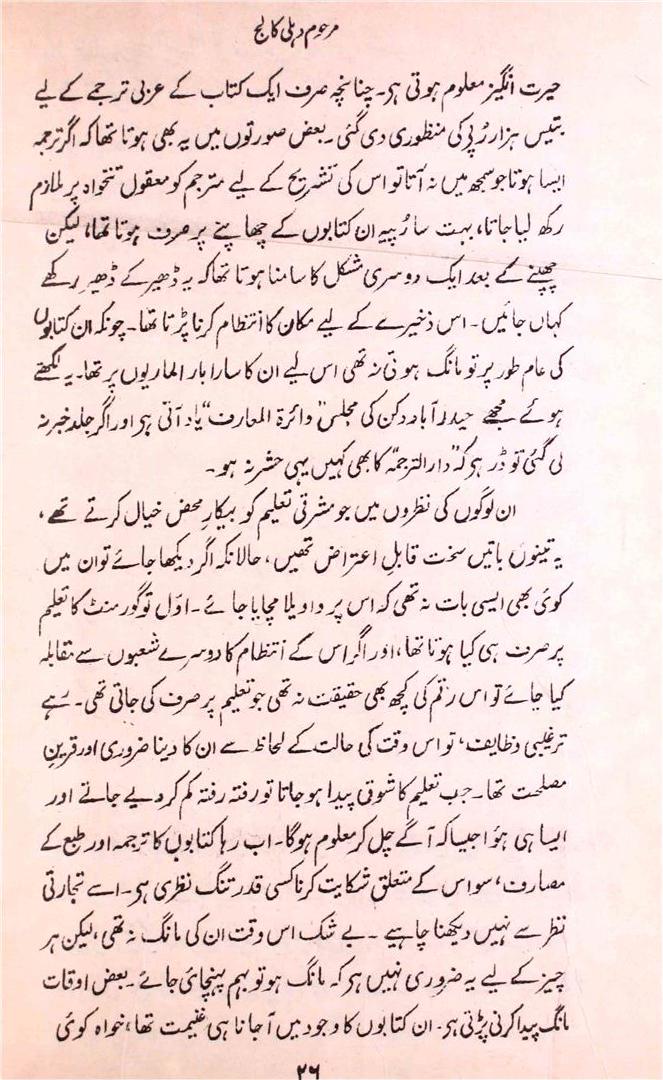 مرحوم دہلی کالج
حیرت انگیز معلوم ہوتی ہی۔ چنانچہ صرف ایک کتاب کے عربی ترجمے کے لیے
بتیس ہزار رُپی کی منظوری دی گئی۔ بعض صورتوں میں یہ بھی ہوتا تھا کہ اگر ترجمہ
ایسا ہوتا جو سمجھ میں نہ آتا تو اس کی تشریح کے لیے مترجم کو معقول تنخواہ پر ملازم
رکھ لیا جاتا، بہت سا رُپیہ ان کتابوں کے چھاپنے پر صرف ہوتا تھا، لیکن
چھپنے کے بعد ایک دوسری مشکل کا سامنا ہوتا تھا کہ یہ ڈھیر کے ڈھیر رکھے
کہاں جائیں۔ اس ذخیرے کے لیے مکان کا انتظام کرنا پڑتا تھا۔ چونکہ ان کتابوں
کی عام طور پر تو مانگ ہوتی نہ تھی اس لیے ان کا سارا بار الماریوں پر تھا۔ یہ لکھتے
ہوئے مجھے حیدرآباد دکن کی مجلس "دائرۃ المعارف" یاد آتی ہی اور اگر جلد خبر نہ
لی گئی تو ڈر ہی کہ "دارالترجمہ" کا بھی کہیں یہی حشر نہ ہو۔
ان لوگوں کی نظروں میں جو مشرقی تعلیم کو بیکارِ محض خیال کرتے تھے،
یہ تینوں باتیں سخت قابلِ اعتراض تھیں، حالانکہ اگر دیکھا جائے تو ان میں
کوئی بھی ایسی بات نہ تھی کہ اس پر واویلا مچایا جائے۔ اوّل تو گورمنٹ کا تعلیم
پر صرف ہی کیا ہوتا تھا، اور اگر اس کے انتظام کا دوسرے شعبوں سے مقابلہ
کیا جائے تو اس رقم کی کچھ بھی حقیقت نہ تھی جو تعلیم پر صرف کی جاتی تھی۔ رہے
ترغیبی وظایف، تو اس وقت کی حالت کے لحاظ سے ان کا دینا ضروری اور قرینِ
مصلحت تھا۔ جب تعلیم کا شوق پیدا ہو جاتا تو رفتہ رفتہ کم کر دیے جاتے اور
ایسا ہی ہؤا جیسا کہ آگے چل کر معلوم ہوگا۔ اب رہا کتابوں کا ترجمہ اور طبع کے
مصارف، سو اس کے متعلق شکایت کرنا کسی قدر تنگ نظری ہی۔ اسے تجارتی
نظر سے نہیں دیکھنا چاہیے۔ بے شک اس وقت ان کی مانگ نہ تھی، لیکن ہر
چیز کے لیے یہ ضروری نہیں ہی کہ مانگ ہو تو بہم پہنچائی جائے۔ بعض اوقات
مانگ پیدا کرنی پڑتی ہی۔ ان کتابوں کا وجود میں آجانا ہی غنیمت تھا، خواہ کوئی
۲۶